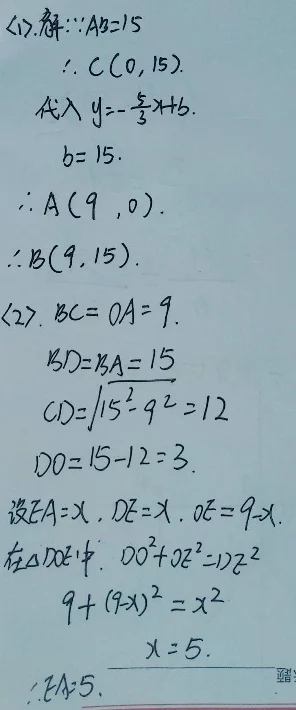 <1>.解:∵AB=15
∴C(0,15).
代入 y=-5/3x+b.
b=15.
∴A(9,0).
∴B(9,15).
<2>. BC=OA=9.
BD=BA=15
CD=√15²-9²=12
DO=15-12=3.
设EA=x.DE=x.OE=9-x.
在△DOE中.DO²+OE²=DE²
9+(9-x)²=x²
x=5.
∴EA=5.
题